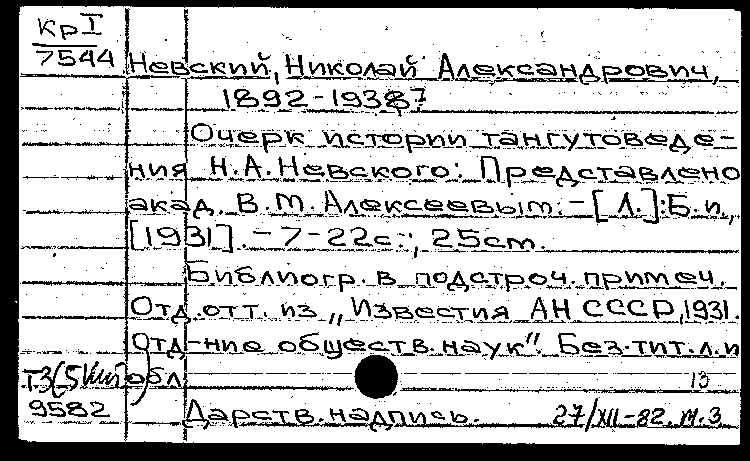 Кр I
7544
Невский, Николай Александрович,
1892-19387
Очерк истории тангутоведе-
ния Н.А.Невского: Представлено
акад. В.М.Алексеевым.-[Л.]:Б.и.,
[1931].-7-22с.; 25см.
Библиогр. в подстроч. примеч.
Отд. отт. из „Известия АН СССР, 1931.
Отд-ние обществ. наук". Без тит. л. и
обл.
13
Т3(5Кит)
9582
Дарств. надпись.
27/XII-82. м.3